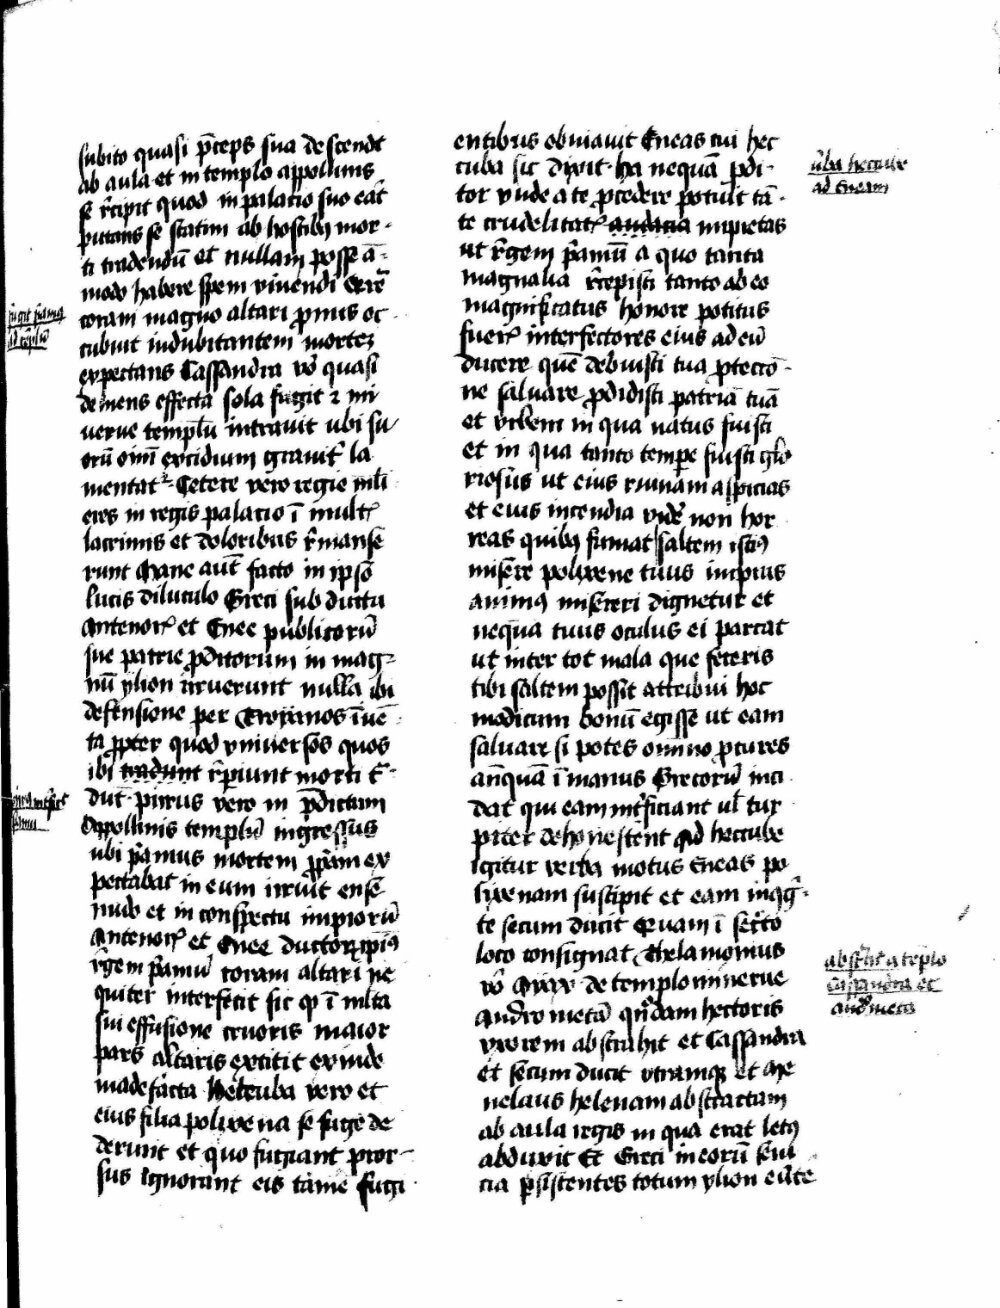 subito quasi p̄ceps sua descendt
ab aula et in templo appollinis
se r̄cipit quod in palatio suo eāt
putans se statim ab hostibꝫ mor-
ti tradendū et nullam posse ā-
modo habere spem viuendi Et r̄e
coram magno altari ꝓnus oc-
cubuit indubitantem mortez
expectans Cassandra vo᷒ quasi
demens effecta sola fugit ⁊ mi
nerue templū intrauit ubi su
orū om̄i excidium grauit᷒ la
mentat᷒ Cetere vero regie mli
eres in regis palacio ī mult᷒
lacrimis et doloribus r̄manse
runt Mane aūt facto in ipso
lucis diluculo Greci sub ductu
Antenor᷒ et Enee publicorū
sue patrie ꝓditorum in mag-
nū ylion irruerunt nulla ibi
defensione per Troyanos īuē-
ta ꝓpter quod vniuersos quos
ibi tradunt r̄piunt morti t̄-
dūt pirus vero in p̄dictum
Appollinis templū ingressus
ubi p̄amus mortem ꝓpam ex
pectabat in eum irruit ense
nudo et in conspectu impiorū
Antenor᷒ et Enee ductoꝝ ip̄iꝰ
r̄gem p̄amū coram altari ne
quiter interfecit sic ꝙ ī mlta
sui effusione cruoris maior
pars altaris extitit exinde
madefacta Heccuba vero et
eius filia polixena se fuge de
derunt et quo fugiant pror-
sus ignorant eis tamē fugi
fugit p̄amꝰ
ad tēplū
entibus obuiauit Eneas cui hec
cuba sic dixit ha nequā ꝓdi-
tor vnde a te ꝓcedere potuit tā-
te crudelitat᷒ audacia impietas
ut r̄gem p̄amū a quo tanta
magnalia r̄cepisti tanto ab eo
magnificatus honore potitus
fuer᷒ interfectores eius ad eū
ducere quē debuisti tua ꝓteccō-
ne saluare ꝓdidisti patriā tuā
et vrbem in qua natus fuisti
et in qua tanto tempe fuisti glo
riosus ut eius ruinam aspicias
et eius incendia vnd᷒ non hor
reas quibꝫ fumat saltem istiꝰ
misere polixene tuus impius
animꝰ misereri dignetur et
nequā tuus oculus ei parcat
ut inter tot mala que feceris
tibi saltem possit attribui hoc
modicum bonū egisse ut eam
saluare si potes omnino ꝓcures
anquā ī manus Grecorū inci
dat qui eam int᷒ficiant ul tur
piter dehonestent Ad heccube
Igitur verba motus Eneas po
lixenam suscipit et eam inqꝫ-
te secum ducit Quam ī sec᷒to
loco consignat Thelamonius
vo᷒ Aiax de templo minerue
Andrometā qn̄dam hectoris
vxorem abstrahit et Cassandra
et secum ducit vtramqꝫ et Me
nelaus helenam abstractam
ab aula regis in qua erat letꝰ
abduxit Et Greci in eorū seui
cia ꝑsistentes totum ylion eūte
v̄ba heccube
ad Eneam
abst̄hit a tēplo
Cassandra et
andrometa